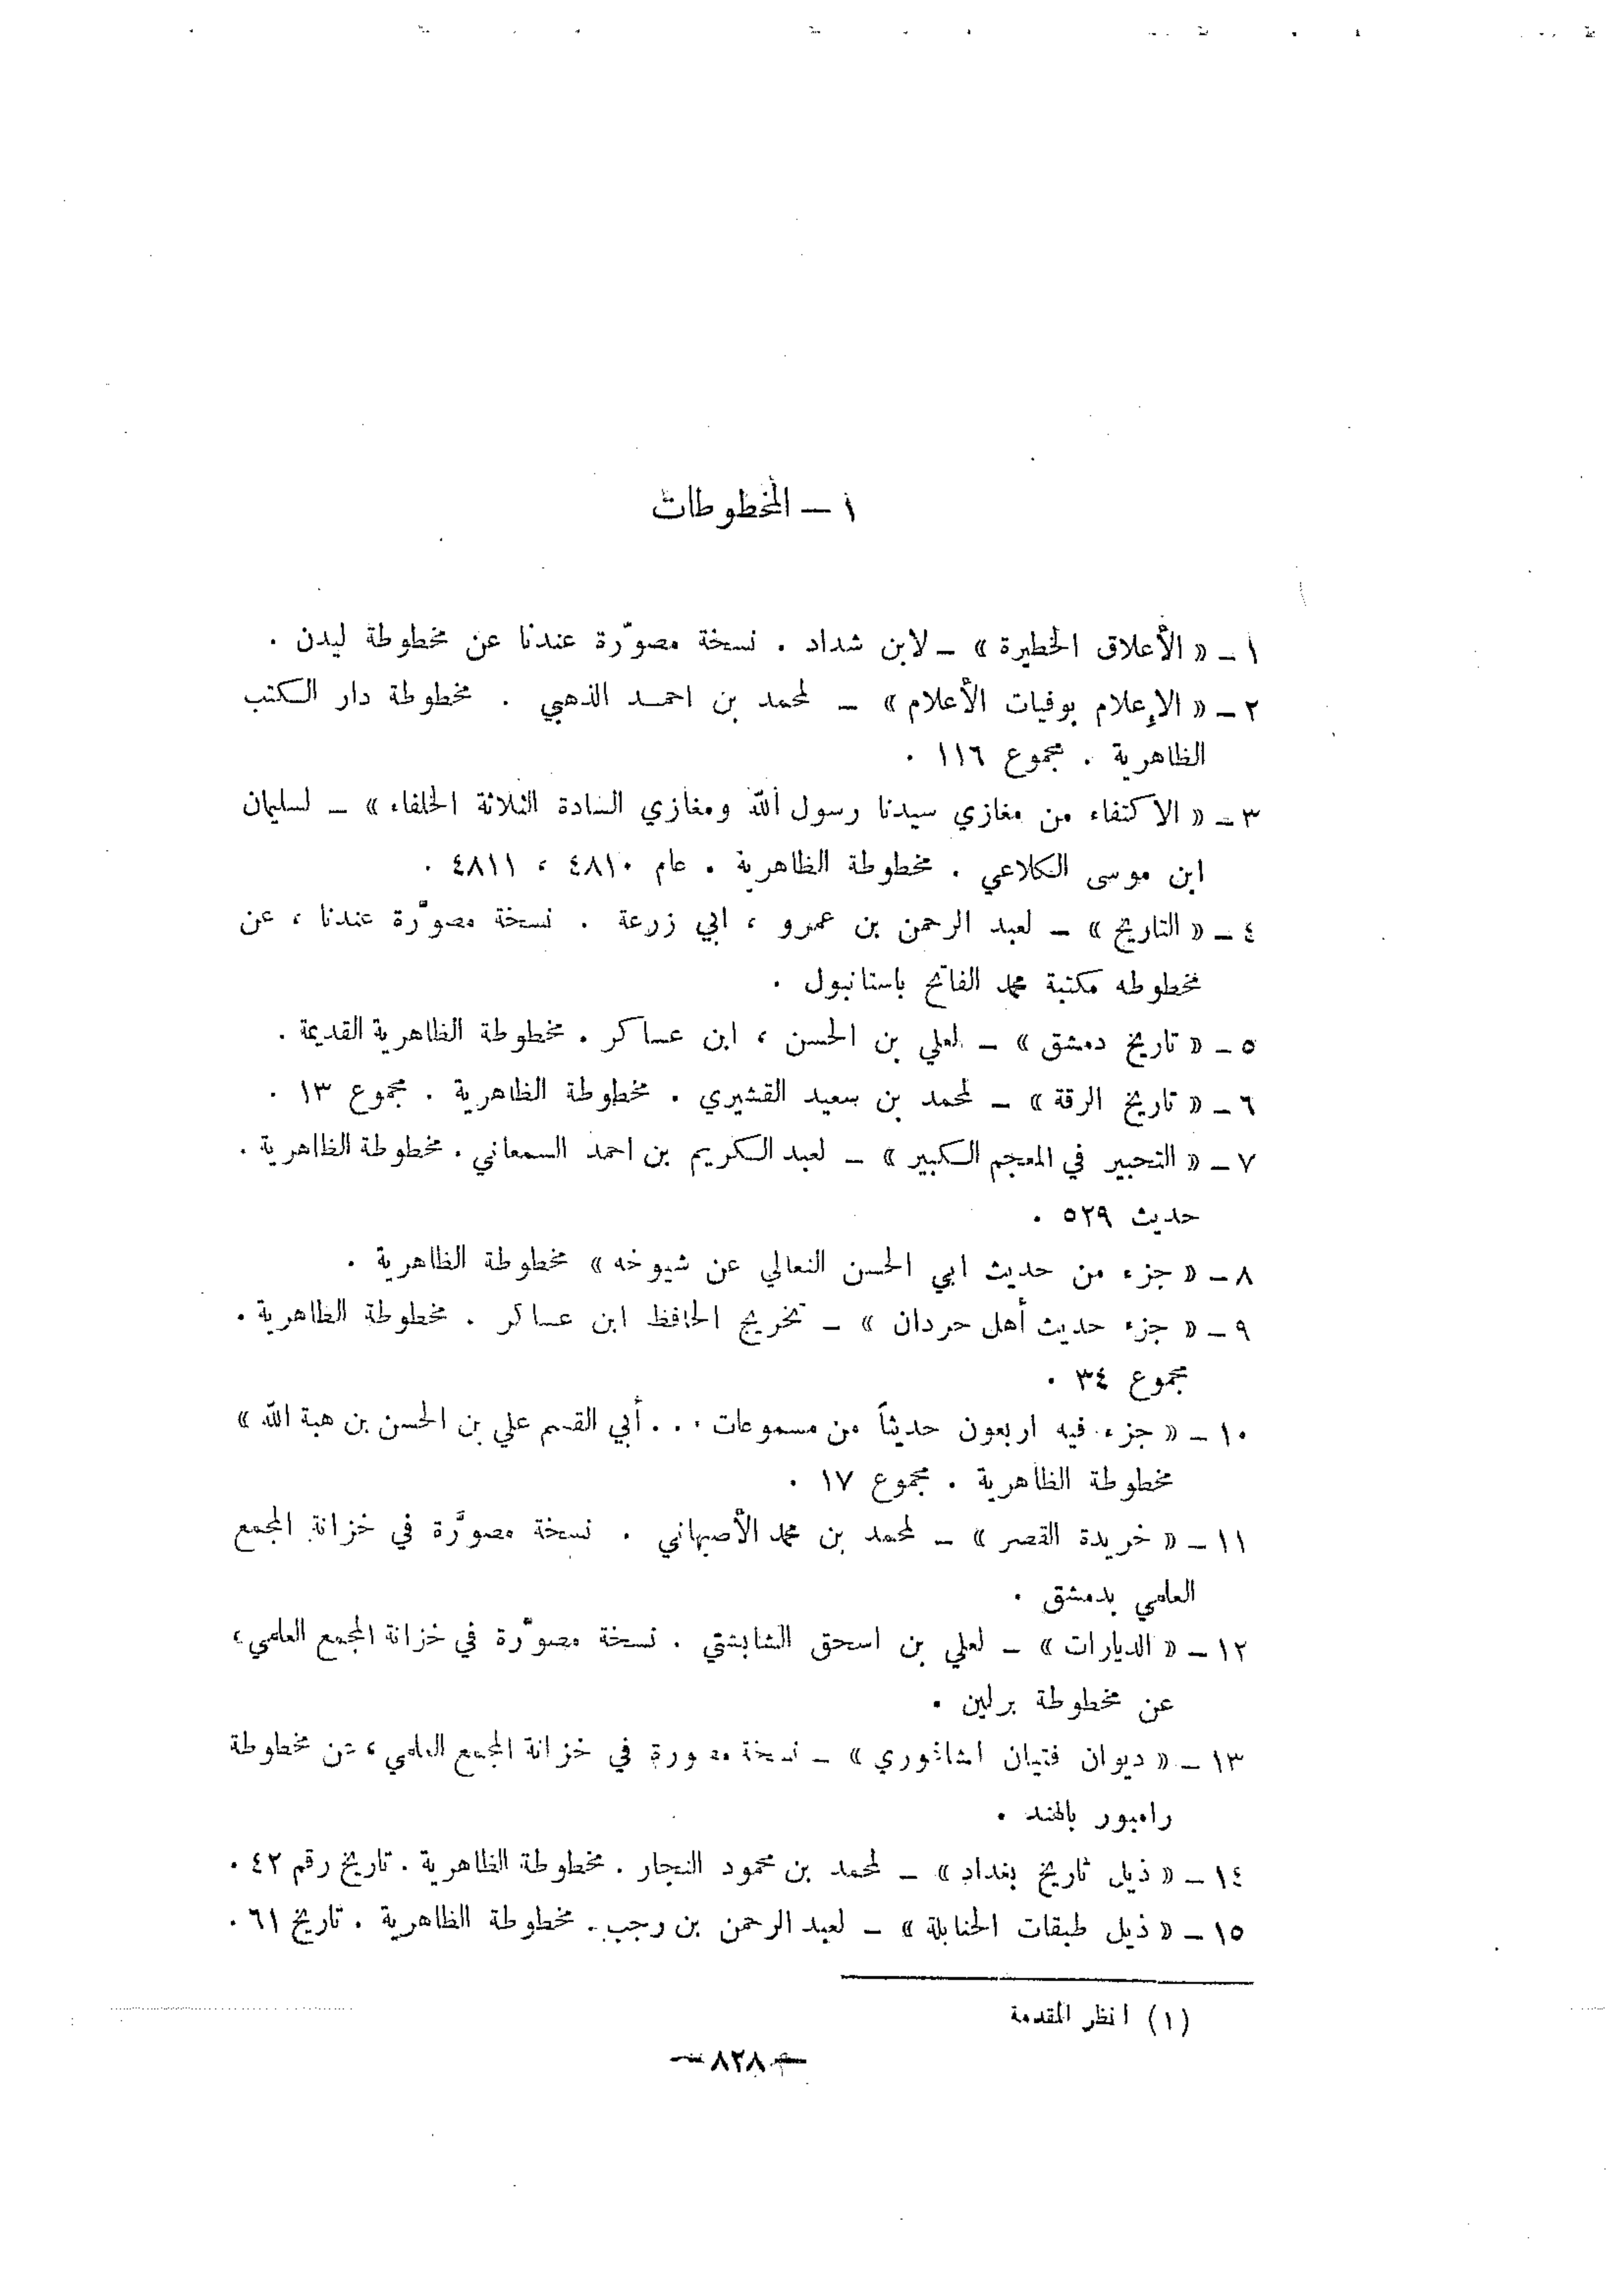 ١ – المخطوطات
١ – « الأعلاق الخطيرة » – لابن شداد . نسخة مصوّرة عندنا عن مخطوطة ليدن .
٢ – « الإعلام بوفيات الأعلام » – لمحمد بن احمد الذهبي . مخطوطة دار الكتب
الظاهرية . مجموع ١١٦ .
٣ – « الاكتفاء من مغازي سيدنا رسول الله ومغازي السادة الثلاثة الخلفاء » – لسليمان
ابن موسى الكلاعي . مخطوطة الظاهرية . عام ٤٨١٠ ، ٤٨١١ .
٤ – « التاريخ » – لعبد الرحمن بن عمرو ، ابي زرعة . نسخة مصوّرة عندنا ، عن
مخطوطه مكتبة محمد الفاتح باستانبول .
٥ – « تاريخ دمشق » – لعلي بن الحسن ، ابن عساكر . مخطوطة الظاهرية القديمة .
٦ – « تاريخ الرقة » – لمحمد بن سعيد القشيري . مخطوطة الظاهرية . مجموع ١٣ .
٧ – « التحبير في المعجم الكبير » – لعبد الكريم بن احمد السمعاني . مخطوطة الظاهرية .
حديث ٥٢٩ .
٨ – « جزء من حديث ابي الحسن النعالي عن شيوخه » مخطوطة الظاهرية .
٩ – « جزء حديث أهل حردان » – تخريج الحافظ ابن عساكر . مخطوطة الظاهرية .
مجموع ٣٤ .
١٠ – « جزء فيه اربعون حديثاً من مسموعات . . . أبي القسم علي بن الحسن بن هبة الله »
مخطوطة الظاهرية . مجموع ١٧ .
١١ – « خريدة القصر » – لمحمد بن محمد الأصبهاني . نسخة مصوَّرة في خزانة المجمع
العلمي بدمشق .
١٢ – « الديارات » – لعلي بن اسحق الشابشتي . نسخة مصوّرة في خزانة المجمع العلمي ،
عن مخطوطة برلين .
١٣ – « ديوان فتيان الشاغوري » – نسخة مصورة في خزانة المجمع العلمي ، عن مخطوطة
رامبور بالهند .
١٤ – « ذيل تاريخ بغداد » – لمحمد بن محمود النجار . مخطوطة الظاهرية . تاريخ رقم ٤٢ .
١٥ – « ذيل طبقات الحنابلة » – لعبد الرحمن بن رجب . مخطوطة الظاهرية . تاريخ ٦١ .
(١) انظر المقدمة
– ٨٢٨ –